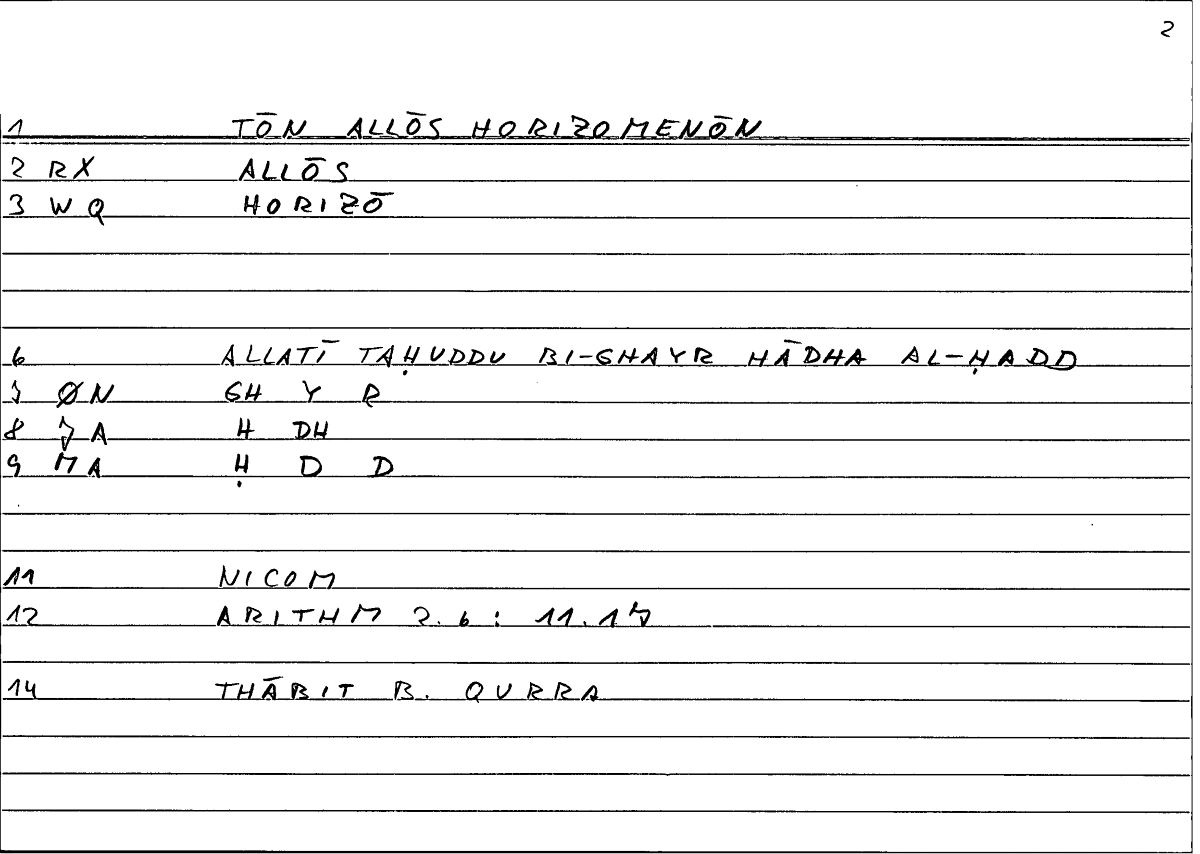 2
1 TŌN ALLŌS HORIZOMENŌN
2 RX ALLŌS
3 WQ HORIZŌ
6 ALLATĪ TAḤUDDU BI-GHAYR HĀDHA AL-ḤADD
7 ØN GH Y R
8 7A H DH
9 MA Ḥ D D
11 NICOM
12 ARITHM 2.6: 11.17
14 THĀBIT B. QURRA